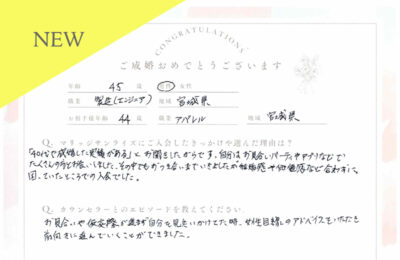 NEW
CONGRATULATIONS
ご成婚おめでとうございます
年齢 45 歳 男性・女性
職業 製造(エンジニア) 地域 宮城県
お相手様年齢 44 歳 職業 アパレル 地域 宮城県
Q. マリッジサンライズにご入会したきっかけや選んだ理由は?
「40代で成婚した実績がある」とお聞きしたからです。自分はお見合いパーティやアプリなどで
たくさんの方とお会いしました。その中でもがっつり会いましたが価値感や価値観など合わずに
困っていたところでの入会でした。
Q. カウンセラーとのエピソードを教えてください。
お見合いや仮交際が進まず自分を見失いかけてた時、女性目線のアドバイスをいただき
前向きに進んでいくことができました。